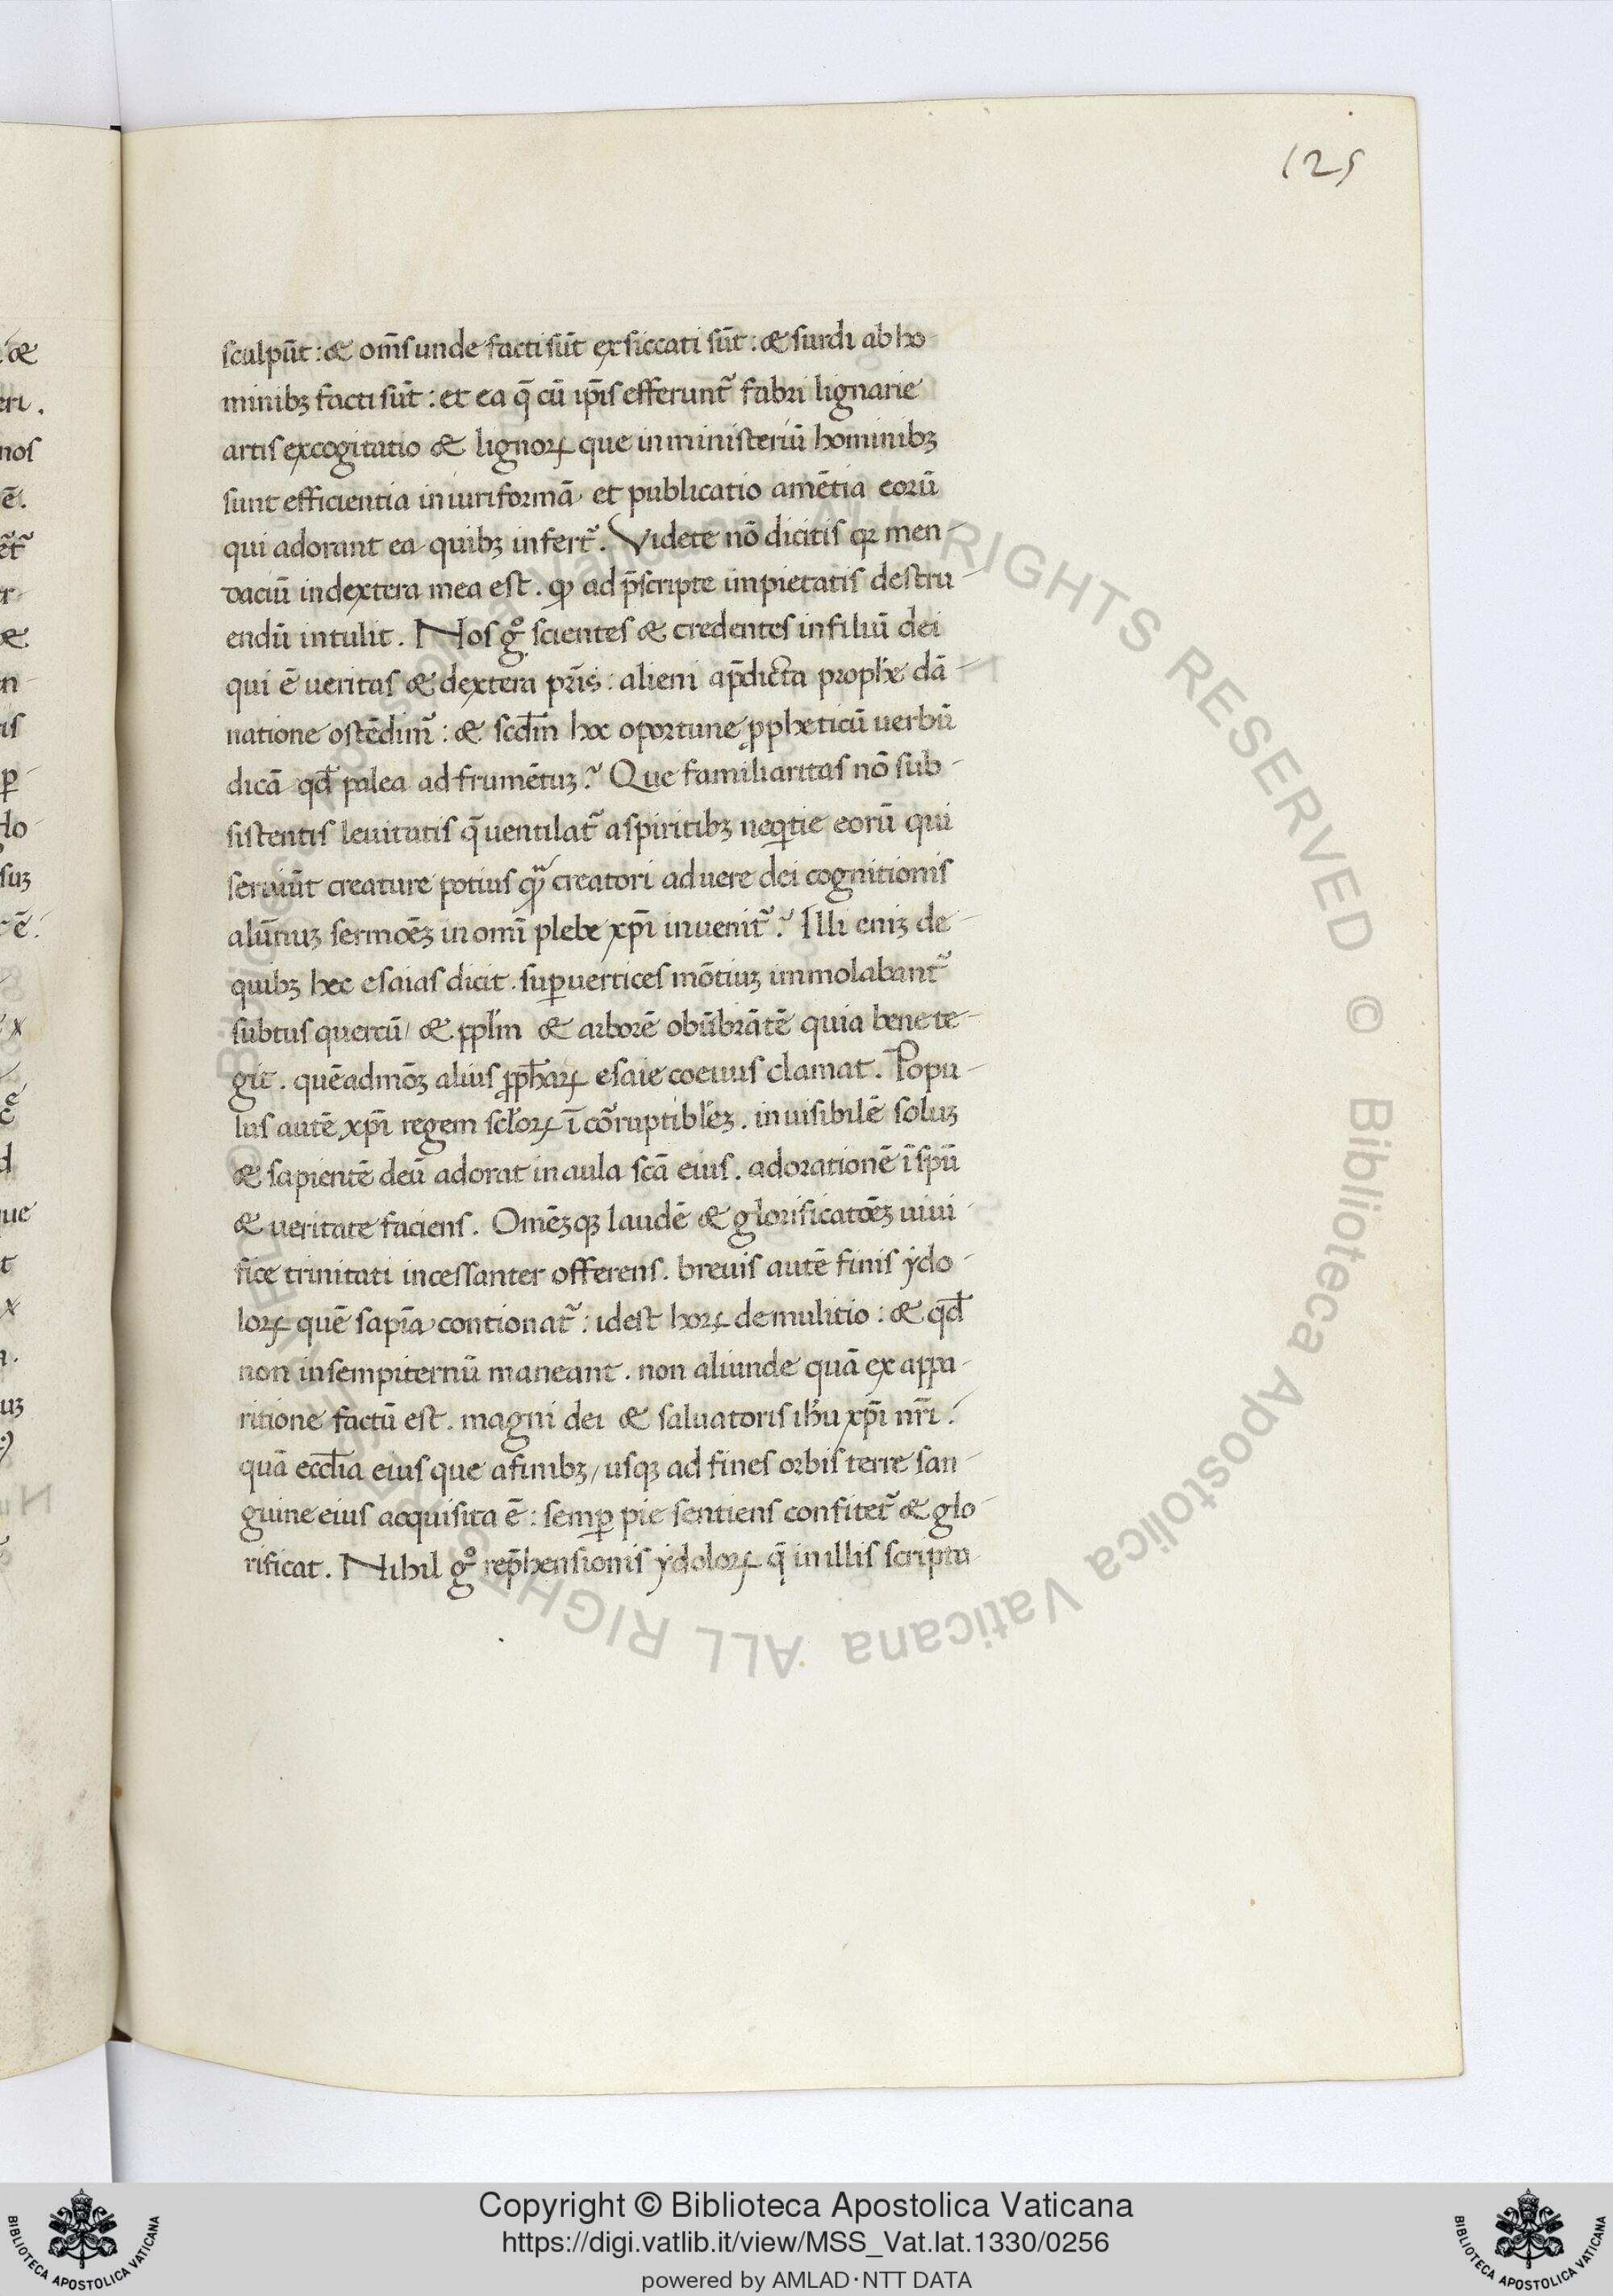 125
sculpūt : & om̄s unde facti sūt exsiccati sūt : & surdi ab ho-
minibꝫ facti sūt : et ea q̄ cū ip̄is efferunt᷑ fabri lignarie
artis excogitatio & lignoꝝ que in ministeriū hominibꝫ
sunt efficientia in iuriformā et publicatio amētia eorū
qui adorant ea quibꝫ infert᷑. Videte nō dicitis qꝛ men-
daciū in dextera mea est. ꝙ ad p̄scripte impietatis destru-
endū intulit. Nos gͦ scientes & credentes in filiū dei
qui ē ueritas & dextera pr̄is : alieni a p̄dicta prophē dā-
natione ostēdim᷑ : & scd̄m hoc oportune ꝓpheticū uerbū
dicā qd̄ palea ad frumētuꝫ? Que familiaritas nō sub-
sistentis leuitatis q̄ uentilat᷑ a spiritibꝫ neqͥtie eorū qui
seruiūt creature potius ꝙͣ creatori ad uere dei cognitionis
alūnuꝫ sermoēꝫ in omī plebe xp̄i inuenit᷑? Illi eniꝫ de
quibꝫ hec esaias dicit. suꝑ uertices mōtiuꝫ immolabant᷑
subtus quercū/ & ppl̄m & arborē obūbrātē quia bene te-
git. quēadmōꝫ alius ꝓph̄aꝝ esaie coeuus clamat. Popu-
lus autē xp̄i regem scl̄oꝝ ī cōrruptibl̄eꝫ. inuisibilē soluꝫ
& sapientē deū adorat in aula scā eius. adorationē ī sp̄ū
& ueritate faciens. Omēꝫqꝫ laudē & glorificatoēꝫ uiui-
fice trinitati incessanter offerens. breuis autē finis ẏdo-
loꝝ quē sapīa contionat᷑ : idest hoꝝ demulitio : & qd̄
non in sempiternū maneant. non aliunde quā ex appa-
ritione factū est. magni dei & saluatoris ih̄u xp̄i nr̄i.
quā eccl̄ia eius que a finibꝫ/ usqꝫ ad fines orbis terre san-
guine eius acquisita ē : semꝑ pie sentiens confitet᷑ & glo-
rificat. Nihil gͦ rep̄hensionis ẏdoloꝝ q̄ in illis scripta
© Biblioteca Apostolica Vaticana ALL RIGHTS RESERVED
Copyright © Biblioteca Apostolica Vaticana
https://digi.vatlib.it/view/MSS_Vat.lat.1330/0256
powered by AMLAD·NTT DATA
BIBLIOTECA APOSTOLICA VATICANA
BIBLIOTECA APOSTOLICA VATICANA